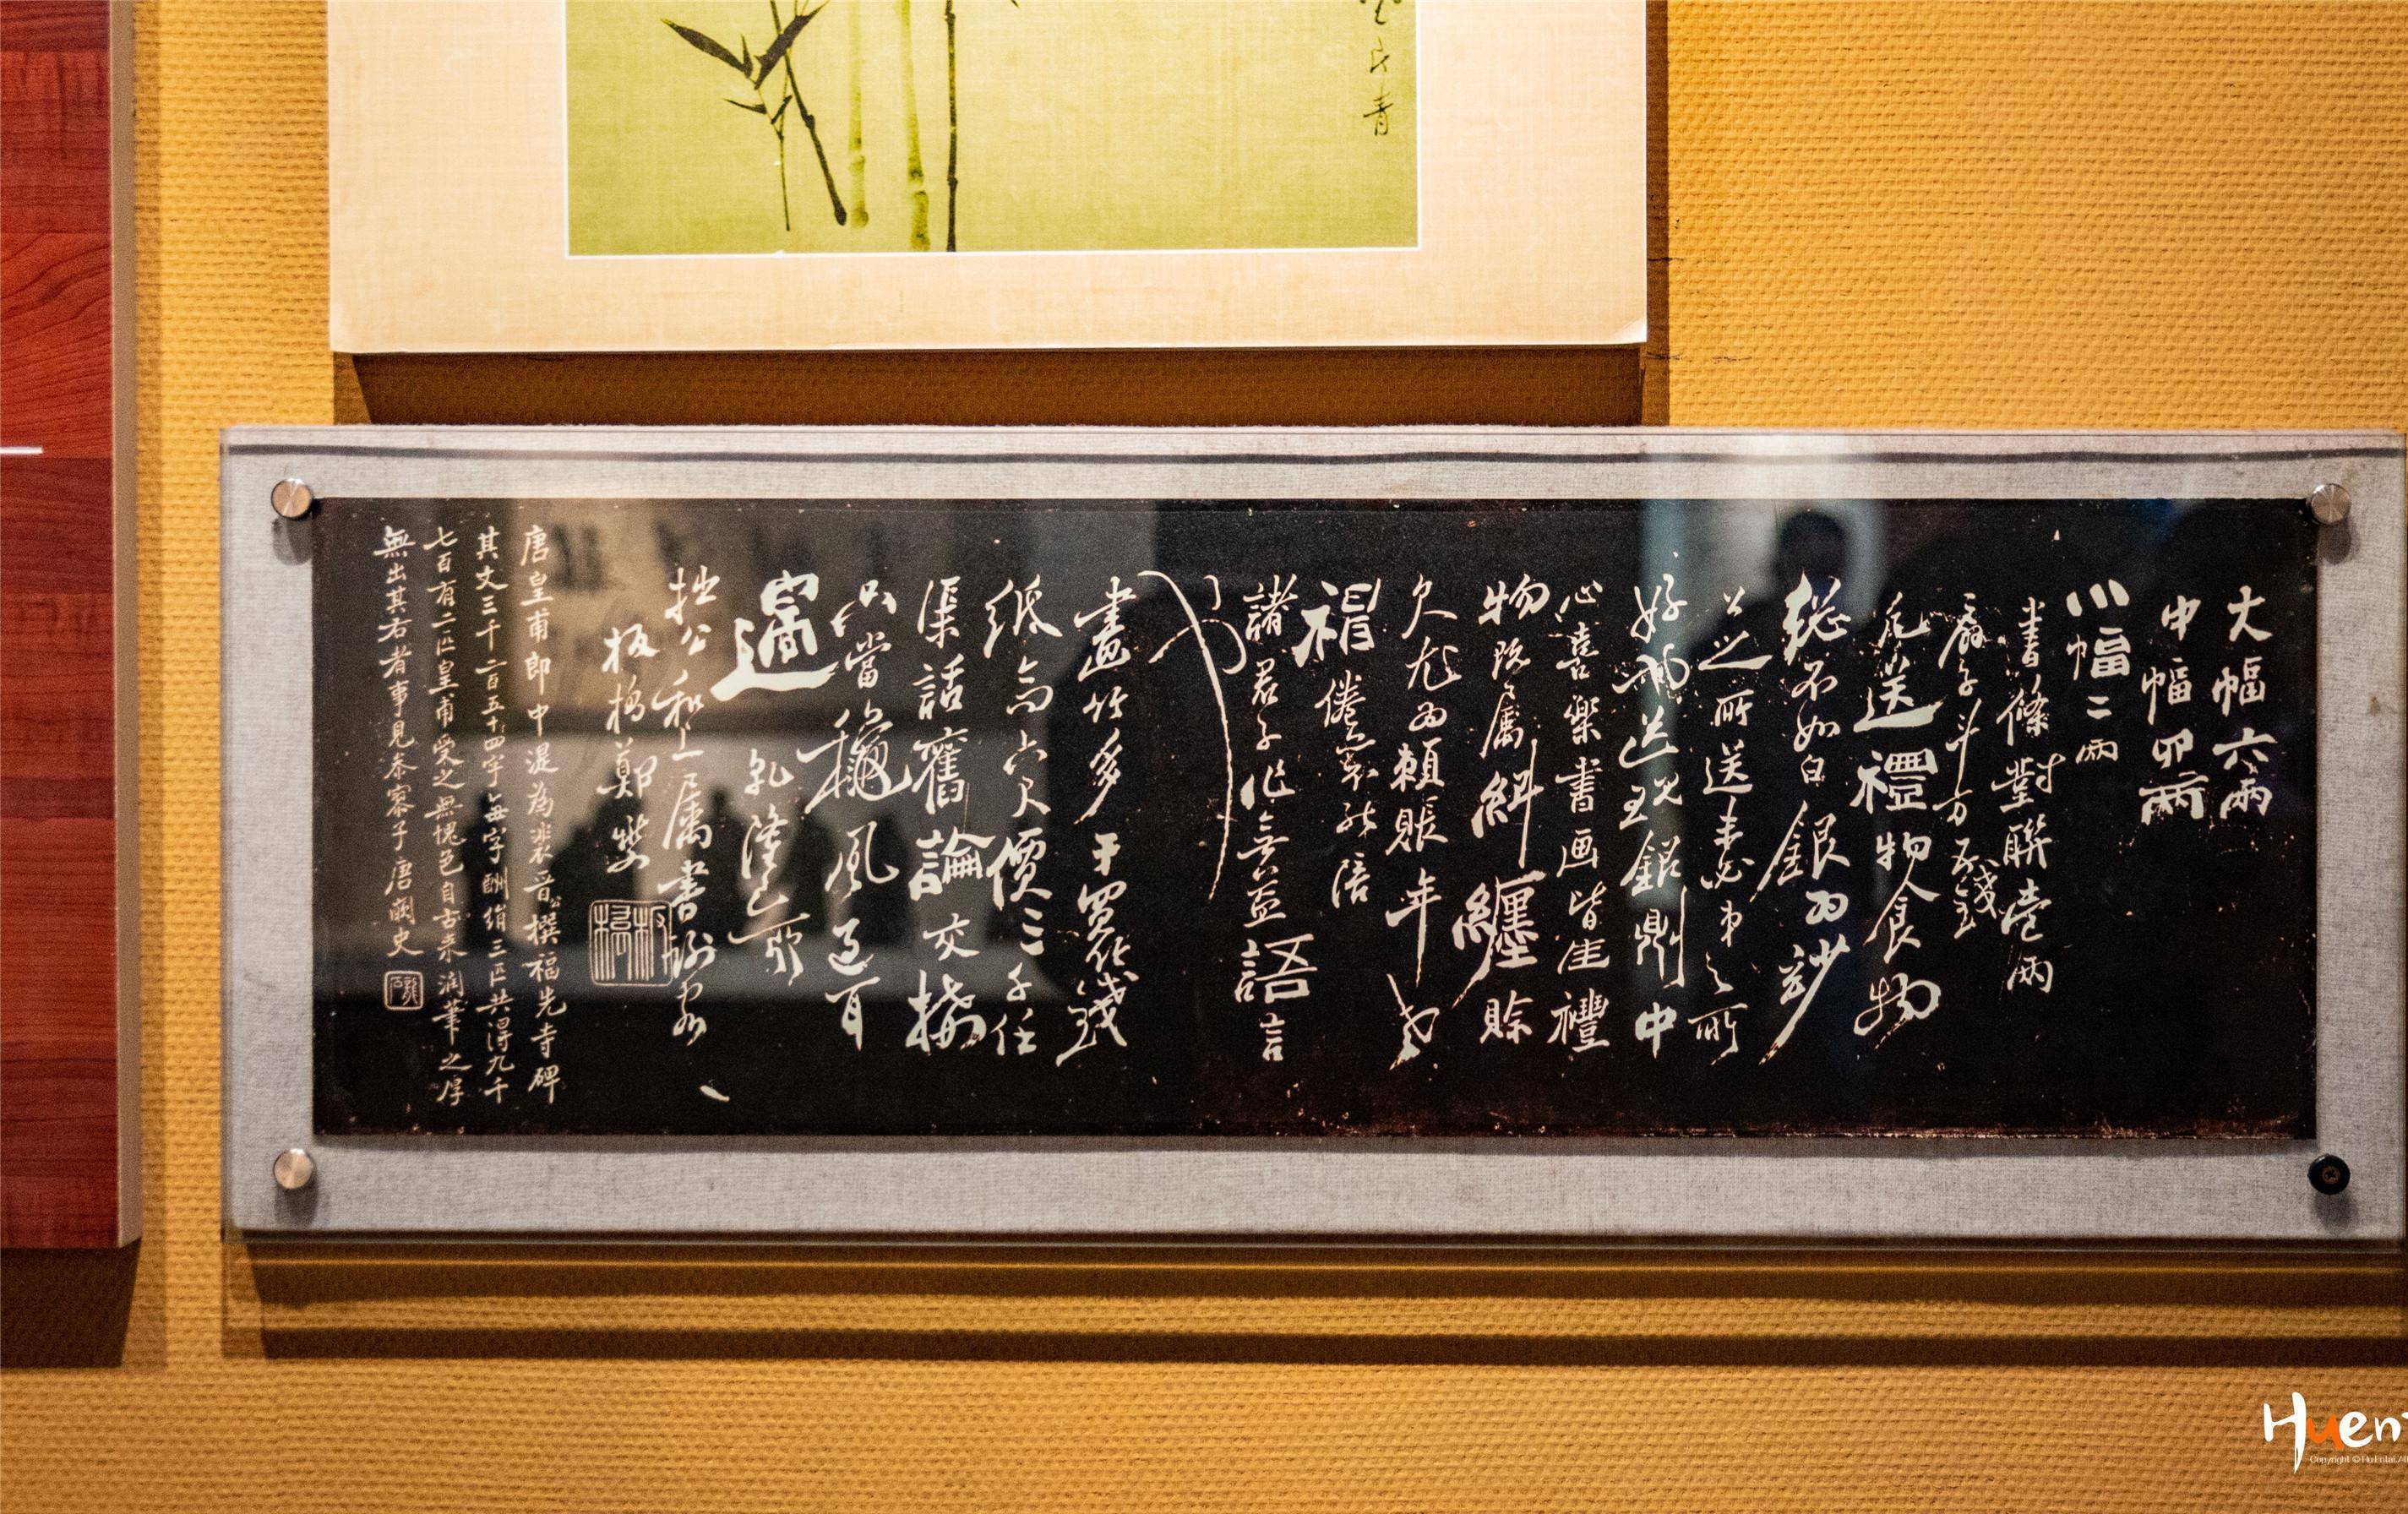 青
大幅六兩
中幅四兩
小幅二兩
書條對聯壹兩
扇子斗方五錢
凡送禮物食物
總不如白銀為妙
公之所送未必弟之所
好也送現銀則中
心喜樂書画皆佳禮
物既屬糾纏賒
欠尤為賴賬年老
神倦不能陪
諸君子作無益語言
也
畫竹多于買竹錢
紙高六尺價三千任
渠話舊論交接
只當龝風過耳
邊 乾隆己卯
拙公和上屬書謝客
板橋鄭燮
板橋
唐皇甫郎中湜為裴晉公撰福先寺碑
其文三千二百五十四字每字酬絹三匹共得九千
七百有二匹皇甫受之無愧色自古來潤筆之厚
無出其右者事見參寥子唐闕史
Huen
Copyright © HuEntai.All